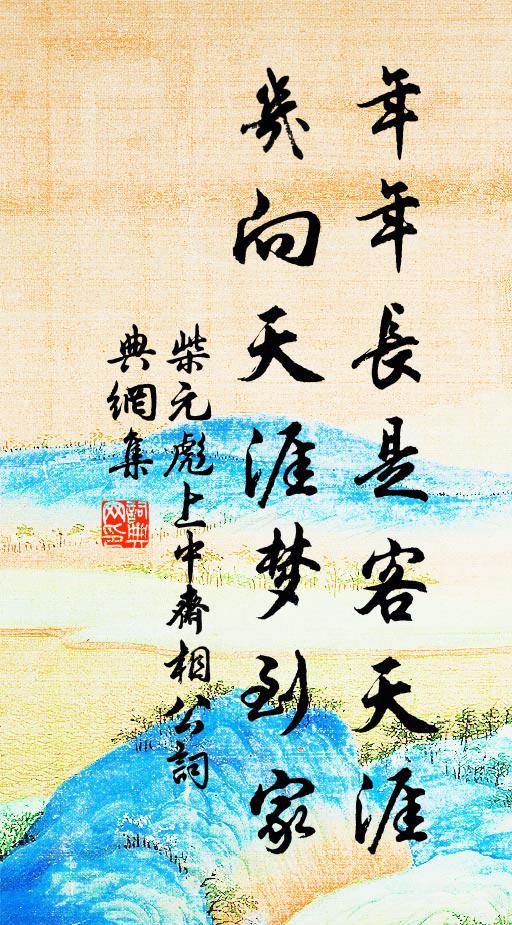 年年長是客天涯
幾向天涯梦到家
柴元彪上中齋相公詞
典網集
詞典网印